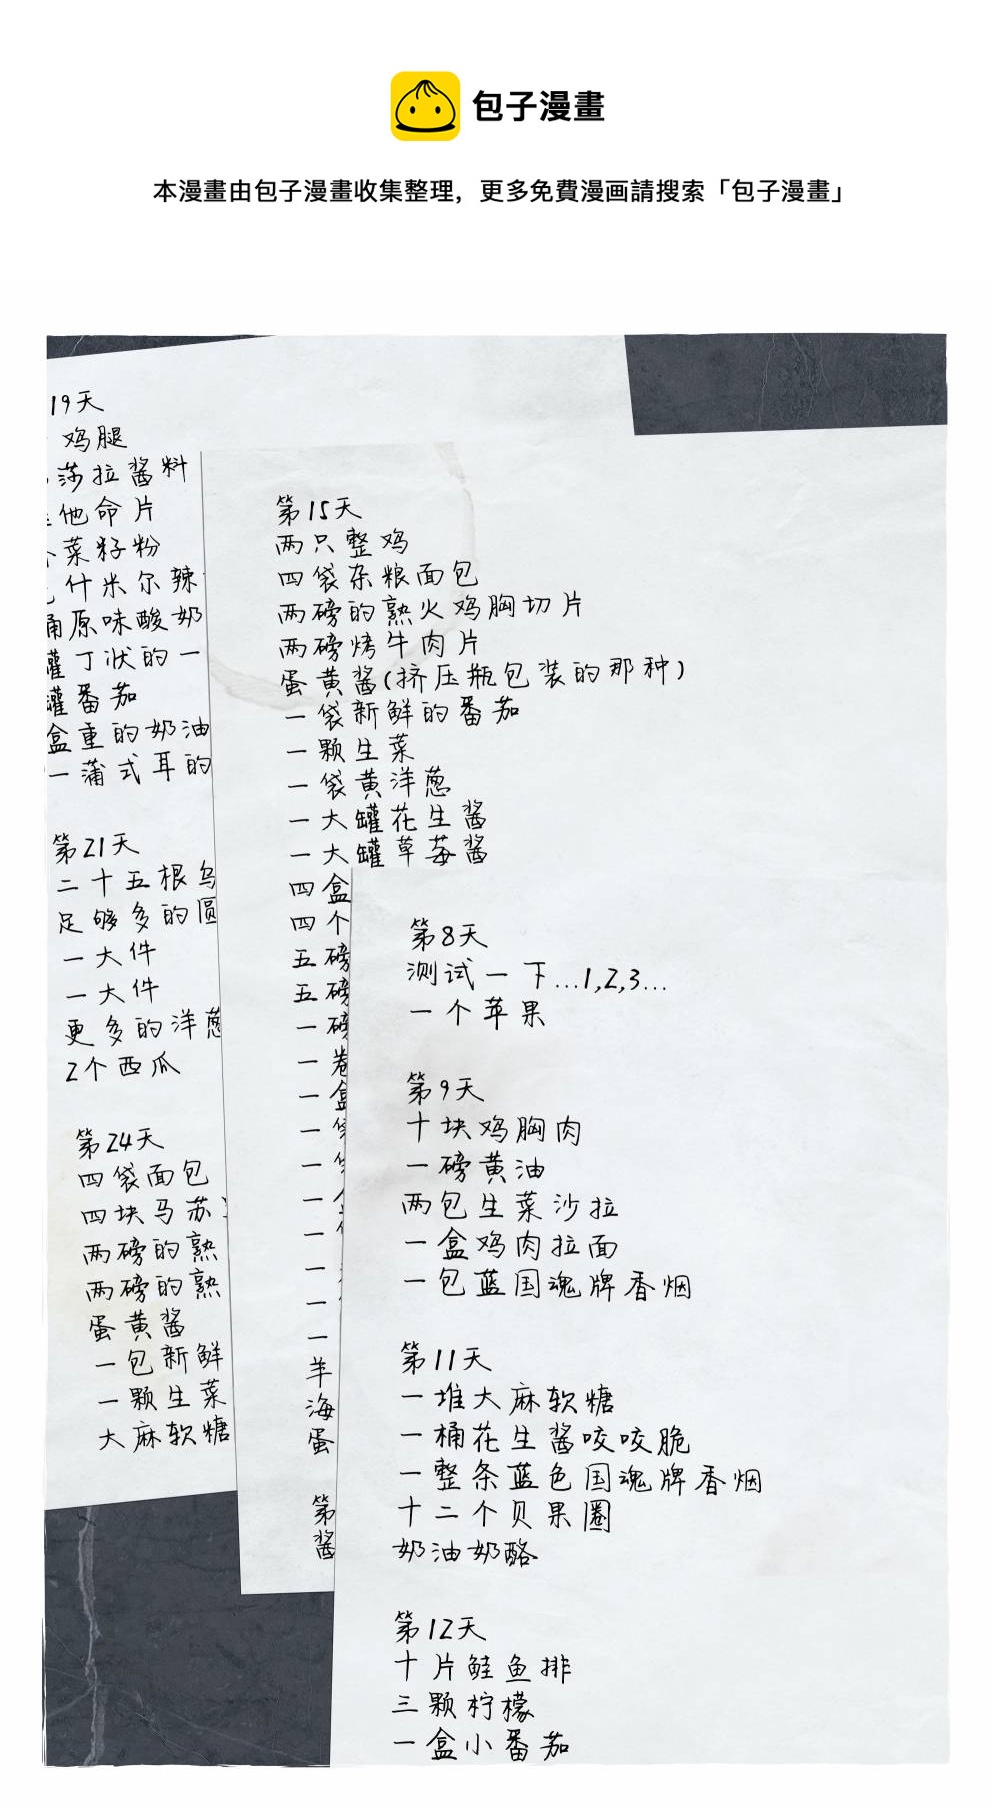 包子漫畫
本漫畫由包子漫畫收集整理，更多免費漫画請搜索「包子漫畫」
19天
鸡腿
莎拉酱料
他命片
菜籽粉
什米尔辣
桶原味酸奶
罐丁状的一
罐番茄
盒重的奶油
一蒲式耳的
第21天
二十五根乌
足够多的圆
一大件
一大件
更多的洋葱
2个西瓜
第24天
四袋面包
四块马苏
两磅的熟
两磅的熟
蛋黄酱
一包新鲜
一颗生菜
大麻软糖
第15天
两只整鸡
四袋杂粮面包
两磅的熟火鸡胸切片
两磅烤牛肉片
蛋黄酱(挤压瓶包装的那种)
一袋新鲜的番茄
一颗生菜
一袋黄洋葱
一大罐花生酱
一大罐草莓酱
四盒
四个
五磅
五磅
一磅
一卷
一盒
一
一
一
一
一
一
一
羊
海
蛋
第
酱
第8天
测试一下...1,2,3...
一个苹果
第9天
十块鸡胸肉
一磅黄油
两包生菜沙拉
一盒鸡肉拉面
一包蓝国魂牌香烟
第11天
一堆大麻软糖
一桶花生酱咬咬脆
一整条蓝色国魂牌香烟
十二个贝果圈
奶油奶酪
第12天
十片鲑鱼排
三颗柠檬
一盒小番茄